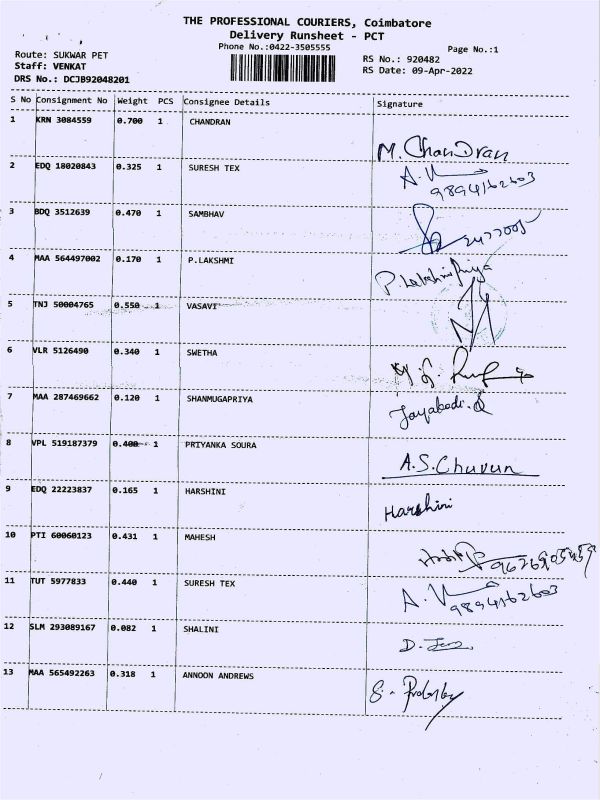 THE PROFESSIONAL COURIERS, Coimbatore
Delivery Runsheet - PCT
Phone No.:0422-3505555
Page No.:1
Route: SUKWAR PET
RS No.: 920482
Staff: VENKAT
RS Date: 09-Apr-2022
DRS No.: DCJB92048201
S No Consignment No Weight PCS Consignee Details Signature
1 KRN 3084559 0.700 1 CHANDRAN M. Chandran
2 EDQ 18020843 0.325 1 SURESH TEX
9894162603
3 BDQ 3512639 0.470 1 SAMBHAV
4 MAA 564497002 0.170 1 P.LAKSHMI P. Lakshmi Priya
5 TNJ 50004765 0.550 1 VASAVI
6 VLR 5126490 0.340 1 SWETHA
7 MAA 287469662 0.120 1 SHANMUGAPRIYA
8 VPL 519187379 0.400 1 PRIYANKA SOURA A.S.Chuvun
9 EDQ 22223837 0.165 1 HARSHINI Harshini
10 PTI 60060123 0.431 1 MAHESH
11 TUT 5977833 0.440 1 SURESH TEX
9894162603
12 SLM 293089167 0.082 1 SHALINI
13 MAA 565492263 0.318 1 ANNOON ANDREWS